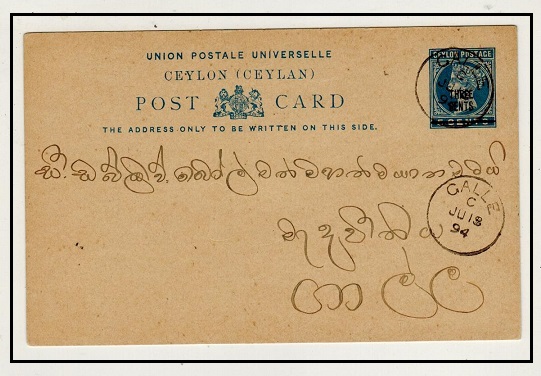 UNION POSTALE UNIVERSELLE
CEYLON (CEYLAN)
POST CARD
THE ADDRESS ONLY TO BE WRITTEN ON THIS SIDE.
CEYLON POSTAGE
THREE
CENTS
සී. ඩබ්ලිව්. බෝල්ටන් මහත්මයානටයි
GALLE
C
JU 18
94
ගාල්ල